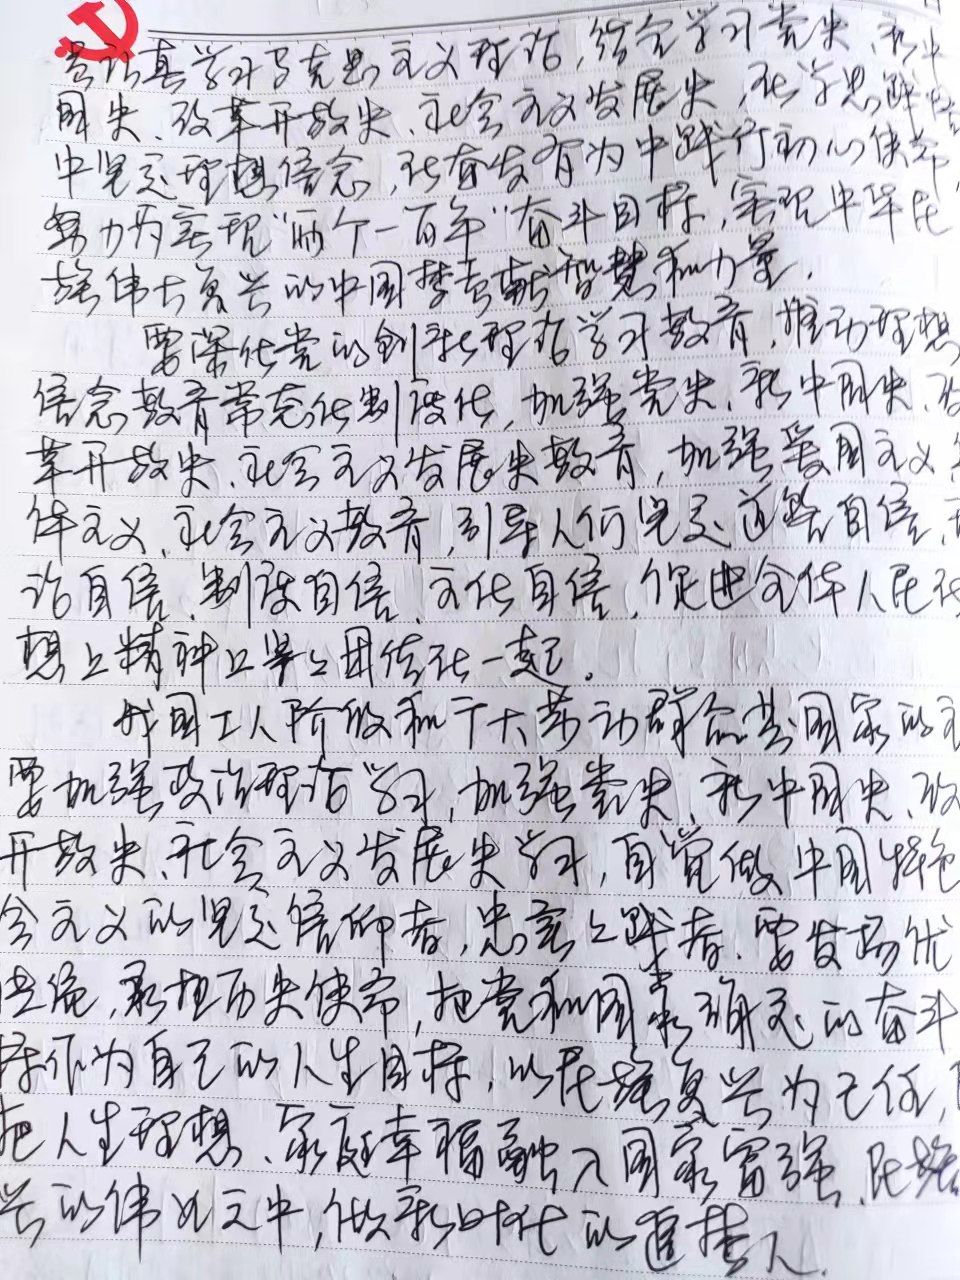 要认真学习马克思主义理论，结合学习党史、新中
国史、改革开放史、社会主义发展史，在学思践悟
中坚定理想信念，在奋发有为中践行初心使命，
努力为实现“两个一百年”奋斗目标，实现中华民
族伟大复兴的中国梦贡献智慧和力量．
要深化党的创新理论学习教育，推动理想
信念教育常态化制度化，加强党史、新中国史、改
革开放史、社会主义发展史教育，加强爱国主义、
体主义、社会主义教育，引导人们坚定道路自信、
论自信、制度自信、文化自信，促进全体人民在
想上精神上紧紧团结在一起．
我国工人阶级和广大劳动群众是国家的主
要加强政治理论学习，加强党史、新中国史、改
开放史、社会主义发展史学习，自觉做中国特色
会主义的坚定信仰者，忠实实践者．要发扬优
传统，承担历史使命，把党和国家确定的奋斗
标作为自己的人生目标，以民族复兴为己任，
把人生理想、家庭幸福融入国家富强、民族
兴的伟业之中，做新时代的追梦人．